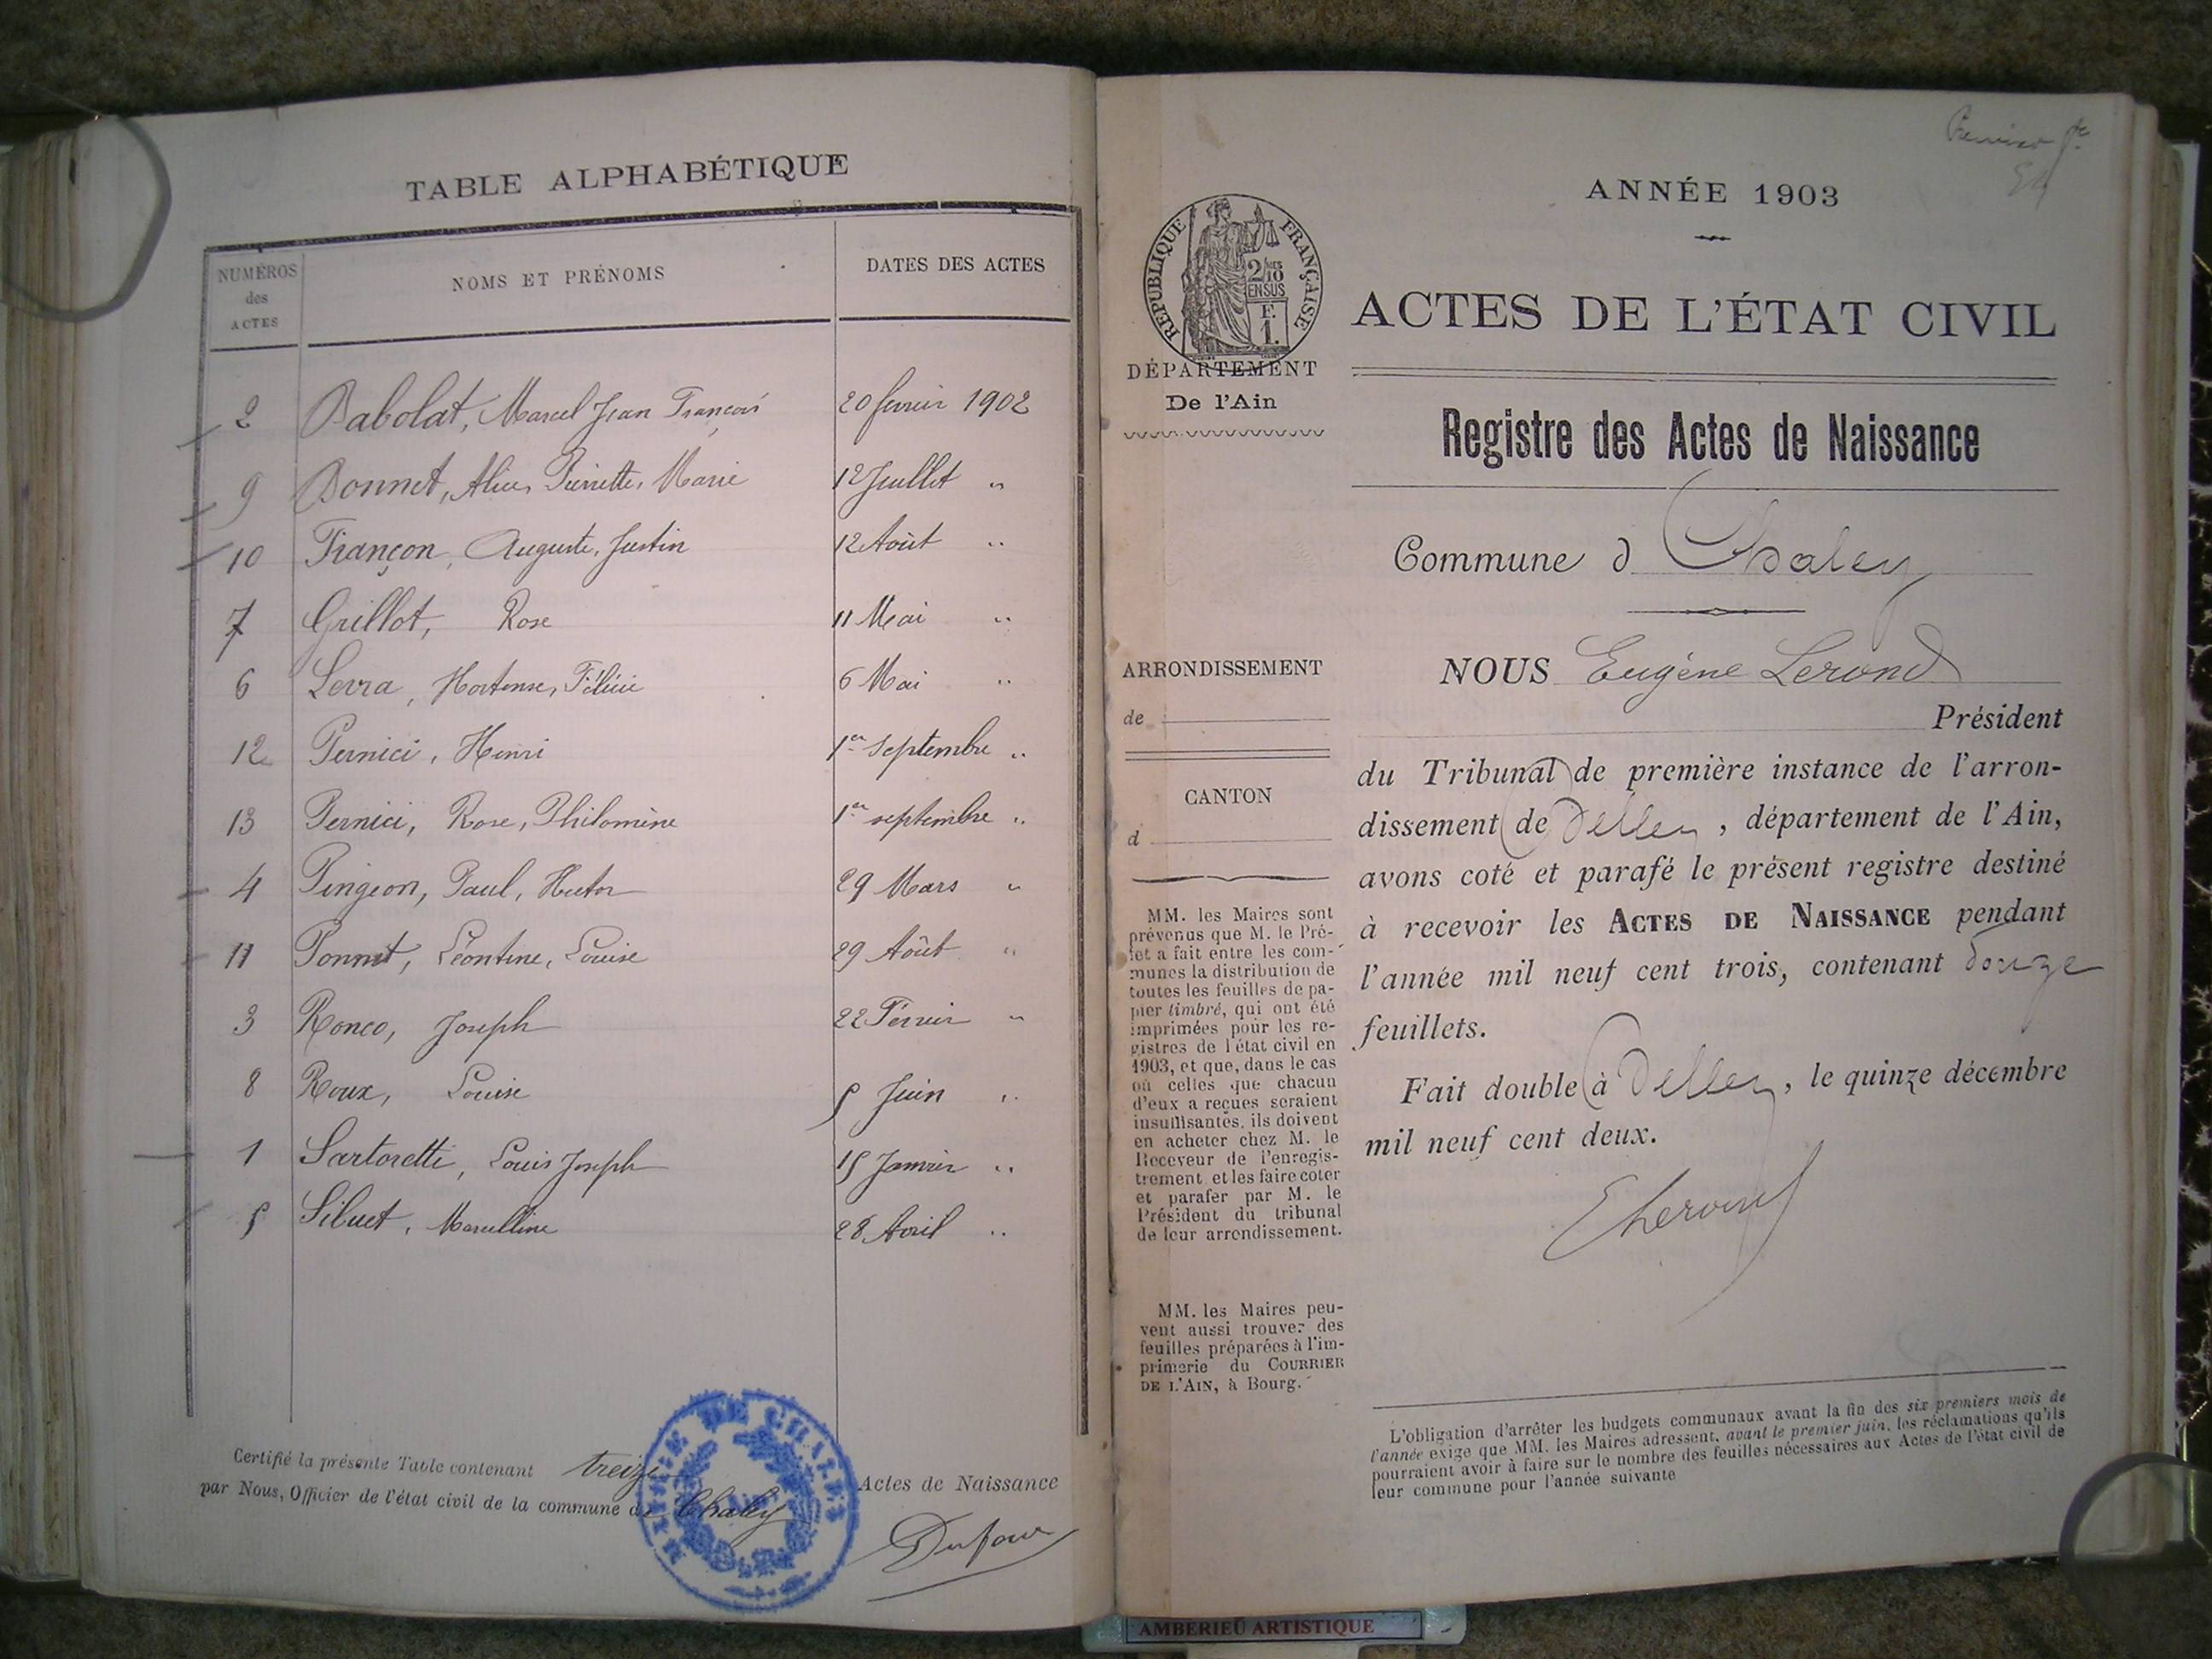 TABLE ALPHABÉTIQUE
NUMÉROS
des
ACTES
NOMS ET PRÉNOMS
DATES DES ACTES
2 Babolat, Marcel Jean François 20 février 1902
9 Bonnet, Alice, Pierrette, Marie 12 Juillet "
10 Françon, Auguste, Justin 12 Août "
7 Grillot, Rose 11 Mai "
6 Levra, Hortense, Félicie 6 Mai "
12 Pernici, Henri 1er Septembre "
13 Pernici, Rose, Philomène 1er septembre "
4 Pingeon, Paul, Hector 29 Mars "
11 Ponnet, Léontine, Louise 29 Août "
3 Ronco, Joseph 22 Février "
8 Roux, Louise 5 Juin "
1 Sartoretti, Louis Joseph 15 Janvier "
5 Siluet, Marcelline 28 Avril "
Certifié la présente Table contenant treize Actes de Naissance
par Nous, Officier de l'état civil de la commune de Chaley
MAIRIE DE CHALEY
Dufour
ANNÉE 1903
RÉPUBLIQUE FRANÇAISE
2/10 EN SUS
F.
1.
ACTES DE L'ÉTAT CIVIL
DÉPARTEMENT
De l'Ain
Registre des Actes de Naissance
Commune d Chaley
ARRONDISSEMENT
de
CANTON
d
MM. les Maires sont
prévenus que M. le Pré-
fet a fait entre les com-
munes la distribution de
toutes les feuilles de pa-
pier timbré, qui ont été
imprimées pour les re-
gistres de l'état civil en
1903, et que, dans le cas
où celles que chacun
d'eux a reçues seraient
insuffisantes, ils doivent
en acheter chez M. le
Receveur de l'enregis-
trement et les faire coter
et parafer par M. le
Président du tribunal
de leur arrondissement.
MM. les Maires peu-
vent aussi trouver des
feuilles préparées à l'im-
primerie du COURRIER
DE L'AIN, à Bourg.
NOUS Eugène Lerond
Président
du Tribunal de première instance de l'arron-
dissement de Belley, département de l'Ain,
avons coté et parafé le présent registre destiné
à recevoir les ACTES DE NAISSANCE pendant
l'année mil neuf cent trois, contenant douze
feuillets.
Fait double à Belley, le quinze décembre
mil neuf cent deux.
E Lerond
L'obligation d'arrêter les budgets communaux avant la fin des six premiers mois de
l'année exige que MM. les Maires adressent, avant le premier juin, les réclamations qu'ils
pourraient avoir à faire sur le nombre des feuilles nécessaires aux Actes de l'état civil de
leur commune pour l'année suivante
AMBERIEU ARTISTIQUE